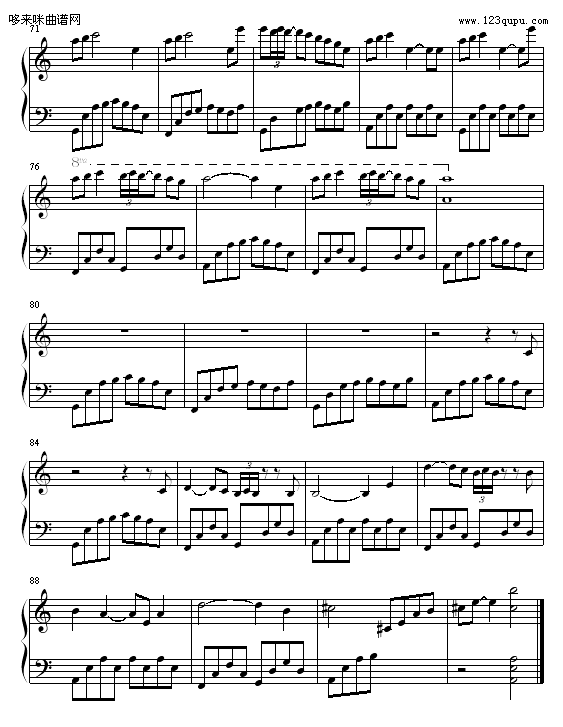 哆来咪曲谱网
www.123qupu.com
71
3
76
8va
3
3
80
84
3
3
88